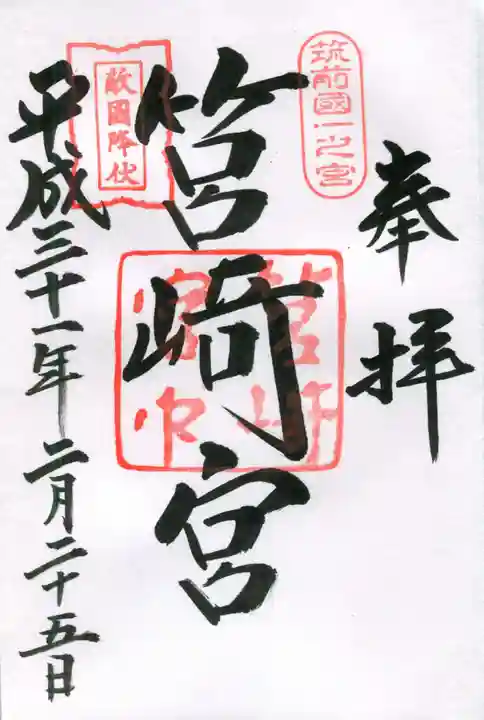 奉拝
筑前國一之宮
筥崎宮
敵國降伏
平成三十一年二月二十五日